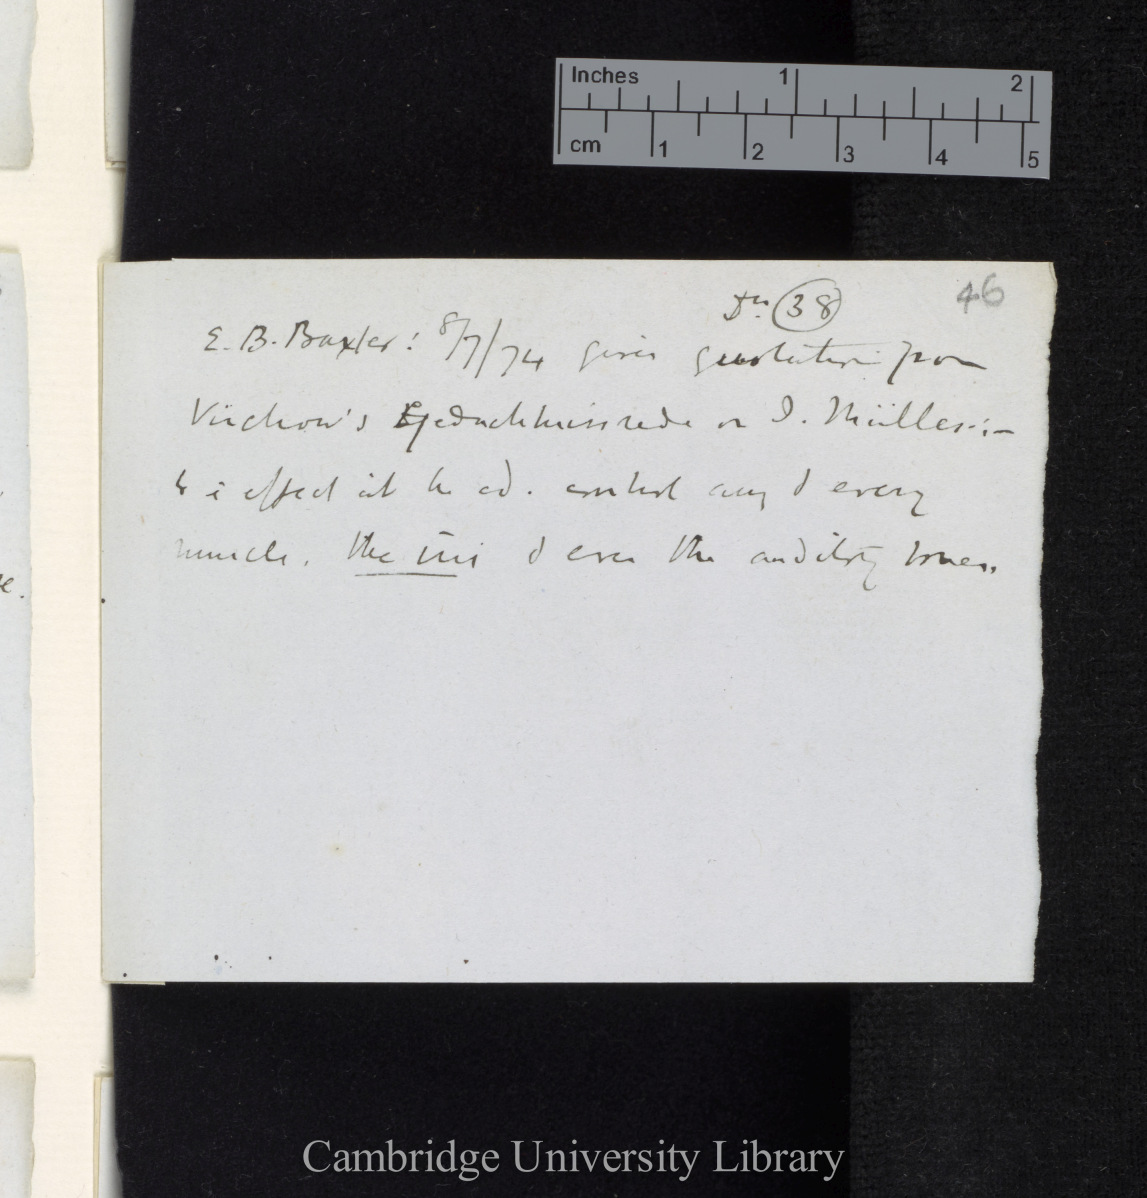 Inches 1 2
cm 1 2 3 4 5
46
Dr. 38
E. B. Baxter: 8/7/74 gives quotation from
Virchow's Gedächtnissrede on J. Müller:—
effect he cd. control any & every
muscle. the iris & even the auditory bones.
Cambridge University Library